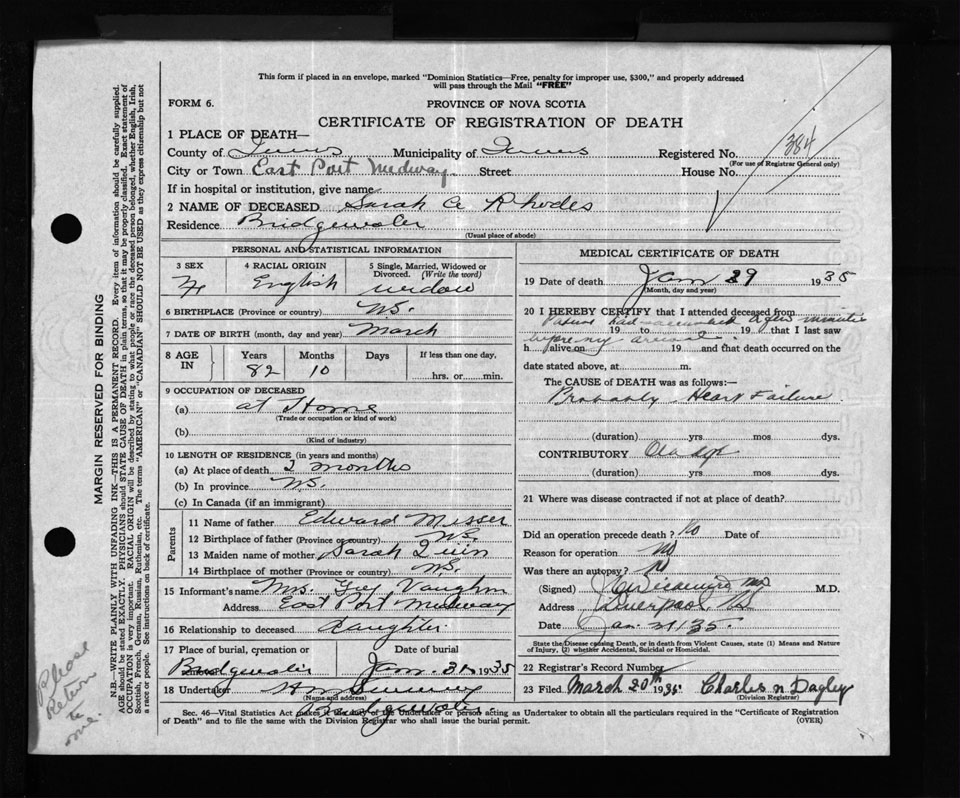 This form if placed in an envelope, marked "Dominion Statistics—Free, penalty for improper use, $300," and properly addressed
will pass through the Mail "FREE"
FORM 6.
PROVINCE OF NOVA SCOTIA
CERTIFICATE OF REGISTRATION OF DEATH
1 PLACE OF DEATH—
County of Municipality of Registered No. 384
(For use of Registrar General only)
City or Town East Port Medway Street House No.
If in hospital or institution, give name
2 NAME OF DECEASED Sarah A Rhodes
Residence Bridgewater
(Usual place of abode)
PERSONAL AND STATISTICAL INFORMATION
3 SEX 4 RACIAL ORIGIN 5 Single, Married, Widowed or
Divorced. (Write the word)
F English widow
6 BIRTHPLACE (Province or country) N.S.
7 DATE OF BIRTH (month, day and year) March
8 AGE IN Years Months Days If less than one day,
82 10 hrs. or min.
9 OCCUPATION OF DECEASED
(a) at Home
(Trade or occupation or kind of work)
(b)
(Kind of industry)
10 LENGTH OF RESIDENCE (in years and months)
(a) At place of death 2 months
(b) In province N.S.
(c) In Canada (if an immigrant)
Parents
11 Name of father Edward Misser
12 Birthplace of father (Province or country) N.S.
13 Maiden name of mother Sarah
14 Birthplace of mother (Province or country) N.S.
15 Informant's name Mrs. Guy Vaughn
Address East Port Medway
16 Relationship to deceased daughter
17 Place of burial, cremation or Date of burial
Bridgewater Jan. 31 1935
18 Undertaker
(Name and address)
Bridgewater
MEDICAL CERTIFICATE OF DEATH
19 Date of death Jan 29 1935
(Month, day and year)
20 I HEREBY CERTIFY that I attended deceased from
Patient had succumbed a few minutes
19 to 19 that I last saw
before my arrival.
h alive on 19 and that death occurred on the
date stated above, at m.
The CAUSE of DEATH was as follows:—
Probably Heart Failure
(duration) yrs mos dys.
CONTRIBUTORY Old age
(duration) yrs. mos dys.
21 Where was disease contracted if not at place of death?
Did an operation precede death? No Date of
Reason for operation No
Was there an autopsy? N
(Signed) M.D.
Address Liverpool NS
Date Jan. 31/35.
State the Disease causing Death, or in death from Violent Causes, state (1) Means and Nature
of Injury, (2) whether Accidental, Suicidal or Homicidal.
22 Registrar's Record Number
23 Filed March 20th 1935 Charles N Dagley
(Division Registrar)
Sec. 46—Vital Statistics Act makes it duty of the Undertaker or person acting as Undertaker to obtain all the particulars required in the "Certificate of Registration
of Death" and to file the same with the Division Registrar who shall issue the burial permit.
(OVER)
MARGIN RESERVED FOR BINDING
N.B.—WRITE PLAINLY WITH UNFADING INK—THIS IS A PERMANENT RECORD. Every item of information should be carefully supplied.
AGE should be stated EXACTLY. PHYSICIANS should STATE CAUSE OF DEATH in plain terms, so that it may be properly classified. Exact statement of
OCCUPATION is very important. RACIAL ORIGIN will be described by stating to what people or race the deceased person belonged, whether English, Irish,
Scottish, French, German, Russian, Ruthenian, etc. The terms "AMERICAN" or "CANADIAN" SHOULD NOT BE USED as they express citizenship but not
a race or people. See instructions on back of certificate.
Please
Return
to
me.